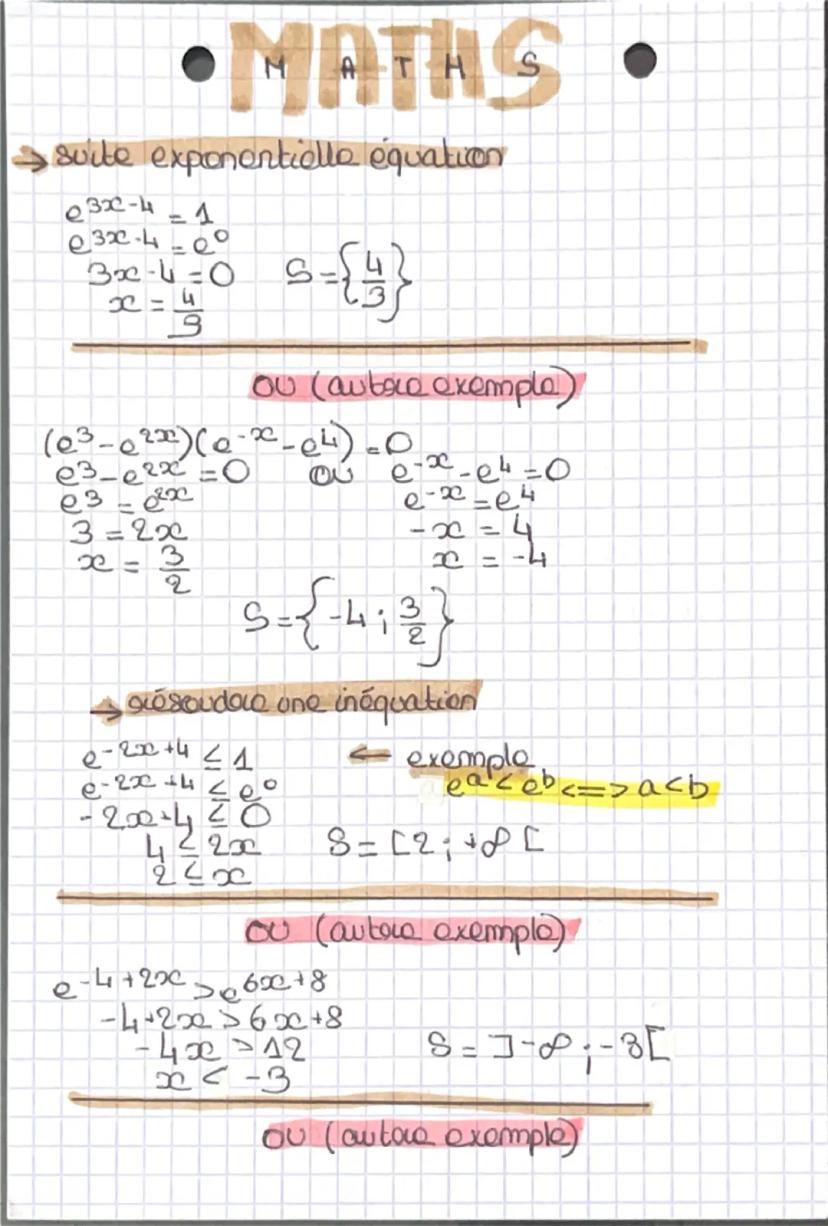 MATHS
M A T H S
→ suite exponentielle équation
e^{3x-4} = 1
e^{3x-4} = e^0
3x-4 = 0 S = {4/3}
x = 4/3
ou (autre exemple)
(e^3 - e^{2x})(e^{-x} - e^4) = 0
e^3 - e^{2x} = 0 ou e^{-x} - e^4 = 0
e^3 = e^{2x} e^{-x} = e^4
3 = 2x -x = 4
x = 3/2 x = -4
S = {-4 ; 3/2}
→ résoudre une inéquation
e^{-2x+4} ≤ 1 ← exemple
e^{-2x+4} ≤ e^0 e^a < e^b <=> a < b
-2x+4 ≤ 0
4 ≤ 2x S = [2 ; +∞ [
2 ≤ x
ou (autre exemple)
e^{-4+2x} > e^{6x+8}
-4+2x > 6x+8
-4x > 12 S = ]-∞ ; -3[
x < -3
ou (autre exemple)